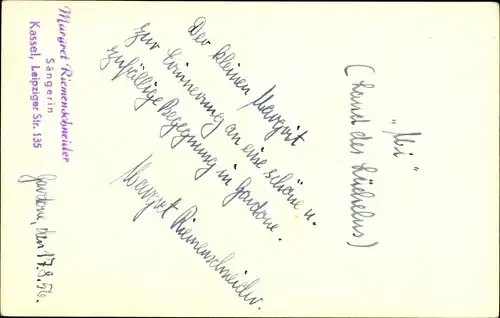 Margret Riemenschneider
Sängerin
Kassel, Leipziger Str. 135
Gardone, den 17.8.56.
Der kleinen Margrit
zur Erinnerung an eine schöne u.
zufällige Begegnung in Gardone.
Margret Riemenschneider.
"Mi"
(Land des Lächelns)